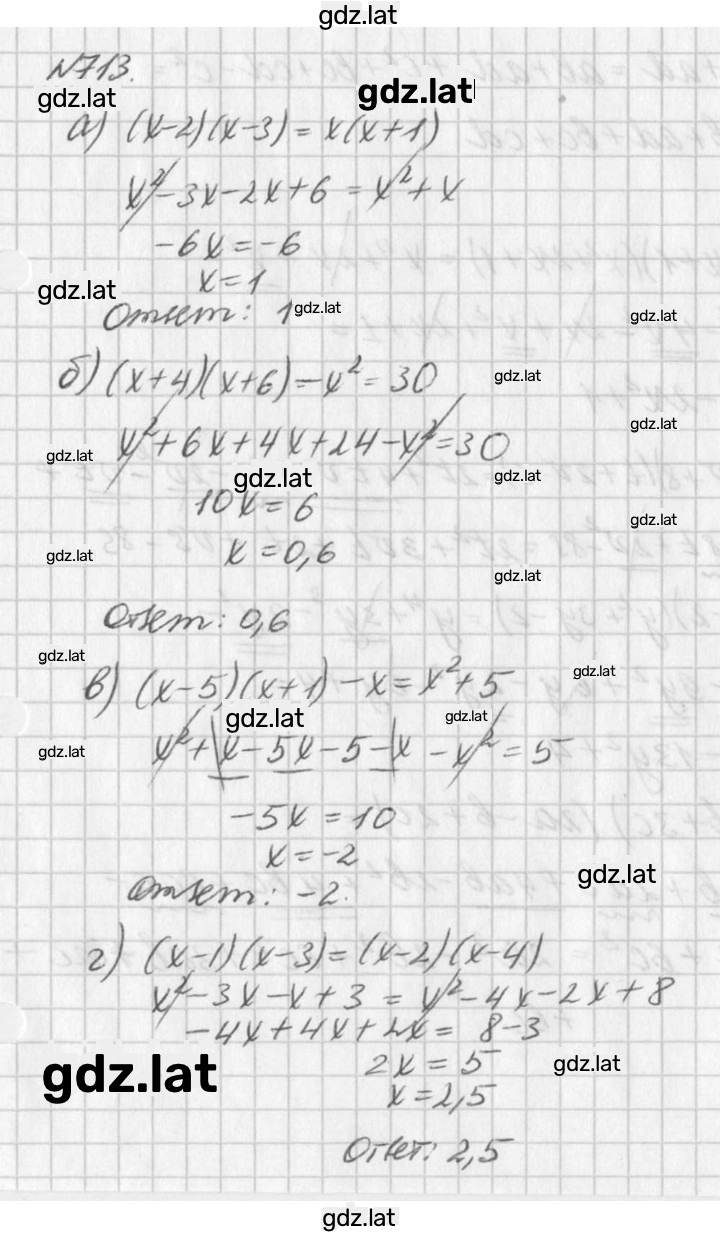 gdz.lat
N713.
gdz.lat gdz.lat
а) (x-2)(x-3) = x(x+1)
x²-3x-2x+6 = x²+x
-6x = -6
x=1
gdz.lat
Ответ: 1 gdz.lat gdz.lat
б) (x+4)(x+6)-x² = 30 gdz.lat
gdz.lat
x²+6x+4x+24-x²=30
gdz.lat gdz.lat gdz.lat
10x = 6 gdz.lat
x = 0,6
gdz.lat gdz.lat
Ответ: 0,6
gdz.lat gdz.lat
в) (x-5)(x+1)-x = x²+5
gdz.lat gdz.lat
x²+x-5x-5-x-x² = 5
gdz.lat
-5x = 10
x = -2
gdz.lat
Ответ: -2.
г) (x-1)(x-3)=(x-2)(x-4)
x²-3x-x+3 = x²-4x-2x+8
-4x+4x+2x = 8-3
2x = 5 gdz.lat
gdz.lat
x=2,5
Ответ: 2,5
gdz.lat